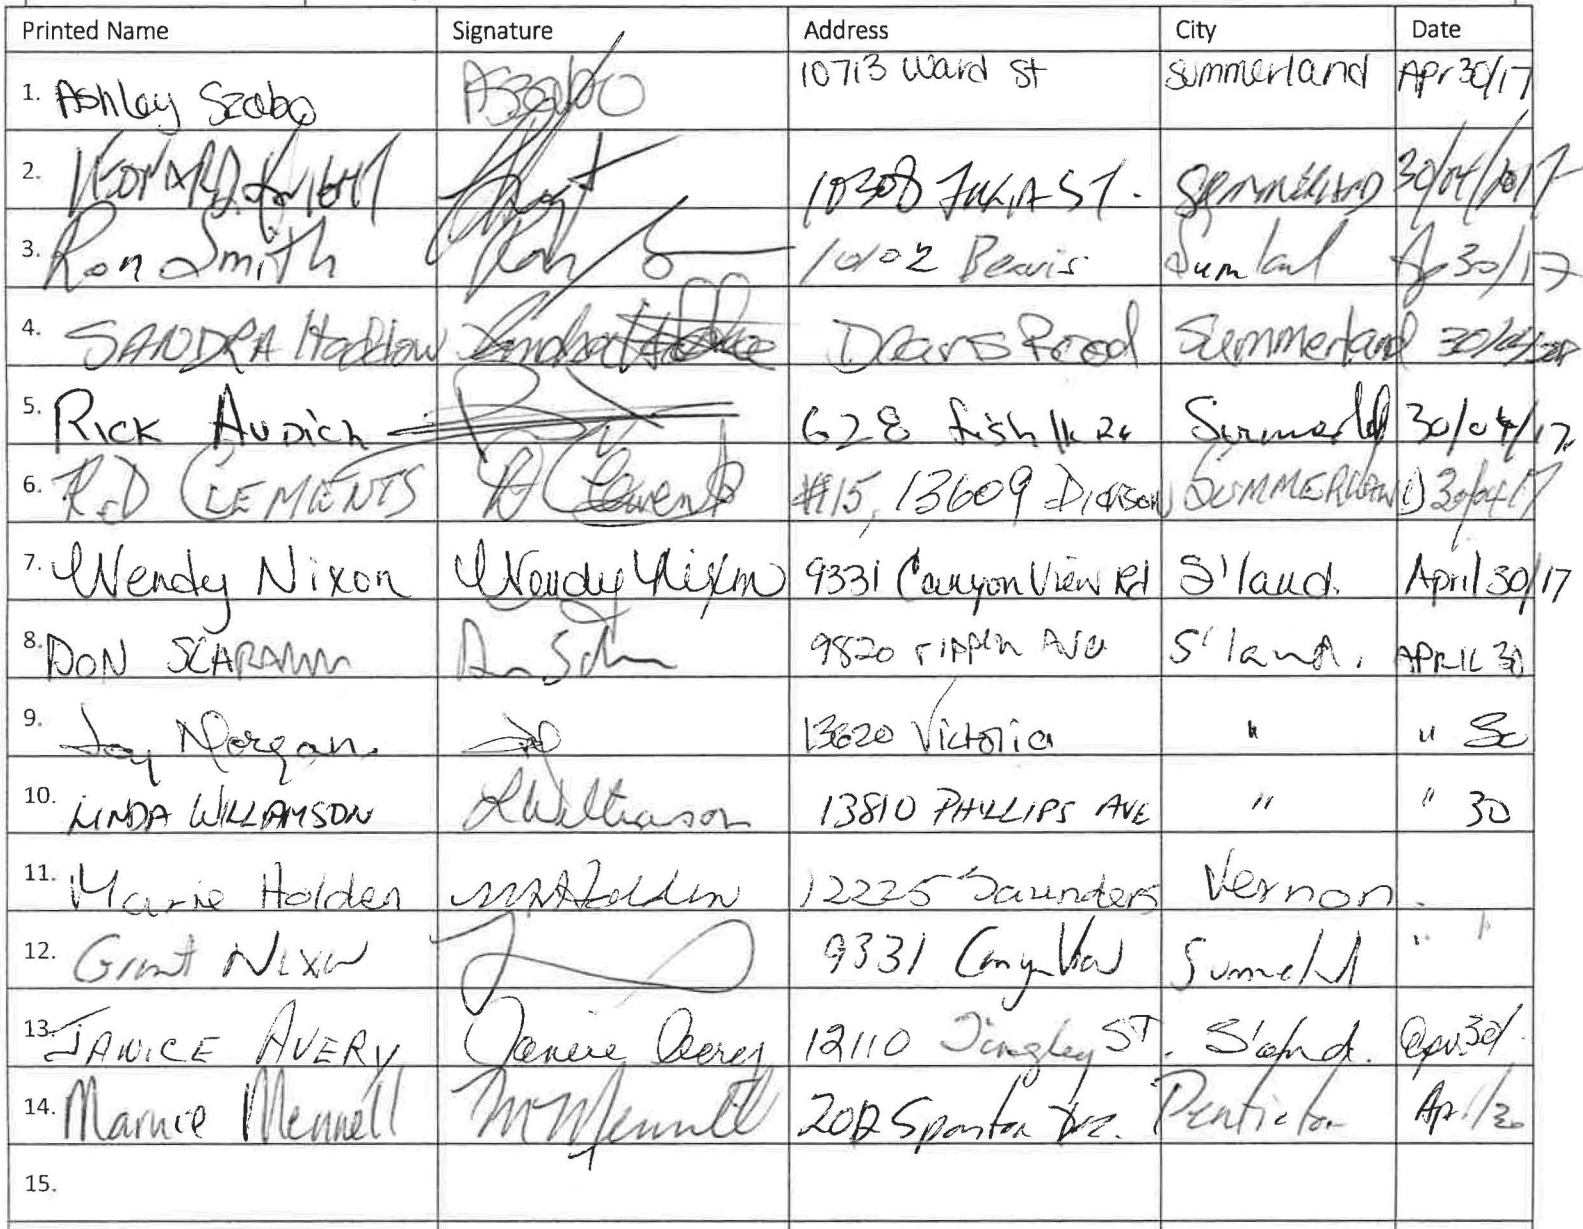 Printed Name Signature Address City Date
1. Ashley Szabo ASzabo 10713 Ward St Summerland Apr 30/17
2. 10308 ST. SUMMERLAND 30/04/2017
3. Ron Smith 10102 Beavis Sumland Ap 30/17
4. SANDRA Haddow Road Summerland
5. RICK AUDICH 628 30/04/17
6. CLEMENTS #15, 13609 DICKSON SUMMERLAND 30/04/17
7. Wendy Nixon Wendy Nixon 9331 Canyon View Rd S'land. April 30/17
8. DON 9820 S'land. APRIL 30
9. Joy Morgan. 13620 Victoria " " 30
10. LINDA WILLIAMSON LWilliamson 13810 PHILLIPS AVE " " 30
11. Marie Holden MAHolden 12225 Saunders Vernon.
12. Grant Nixon 9331 " "
13. JANICE AVERY Janice Avery 12110 Tingley ST. S'land. Apr. 30/
14. Marnie Mennell M Mennell Penticton Apr. /30
15.